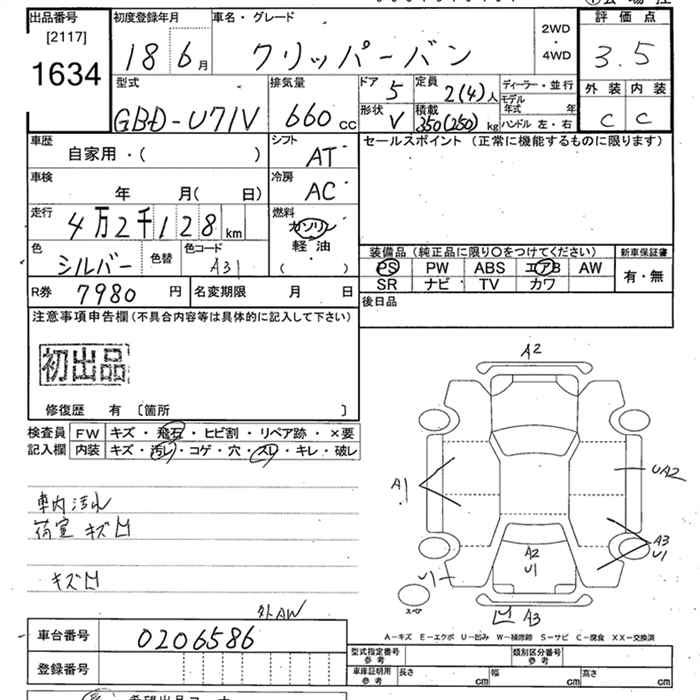 出品番号
[2117]
1634
初度登録年月
18 6月
車名・グレード
クリッパーバン
2WD
・
4WD
評価点
3.5
外装 内装
C C
型式
GBD-U71V
排気量
660cc
ドア 5
形状 V
定員 2(4)人
積載 350(250)kg
ディーラー・並行
モデル年式 年
ハンドル 左・右
車歴
自家用・( )
シフト
AT
車検
年 月( 日)
冷房
AC
走行
4万2千128km
燃料
ガソリン
軽油
( )
色
シルバー
色替
色コード
A31
R券 7980円
名変期限 月 日
セールスポイント(正常に機能するものに限ります)
装備品(純正品に限り〇をつけてください)
PS PW ABS エアB AW
SR ナビ TV カワ
新車保証書
有・無
後日品
注意事項申告欄(不具合内容等は具体的に記入して下さい)
初出品
修復歴 有 [箇所 ]
検査員記入欄
FW キズ・飛石・ヒビ割・リペア跡・×要
内装 キズ・汚レ・コゲ・穴・スレ・キレ・破レ
車内汚れ
荷室 キズ凹
キズ凹
外AW
A2
A1
UA2
A3
U1
A2
U1
U1
スペア
凹 A3
A-キズ E-エクボ U-凹み W-補修跡 S-サビ C-腐食 XX-交換済
車台番号 0206586
登録番号
型式指定番号
参考
類別区分番号
参考
車庫証明用
参考
長さ cm 幅 cm 高さ cm